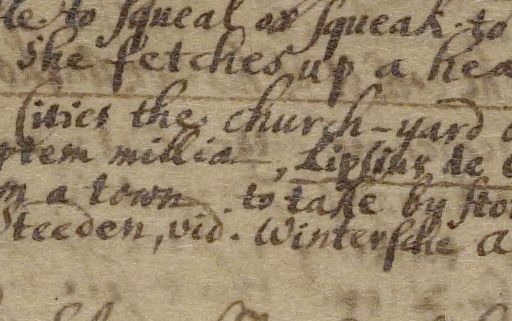 to squeal or squeak. to
she fetches up a hea
Cities the church-yard
ptem millia, Lipsius de
m a town. to take by sto
Steeden, vid. Wintersche A